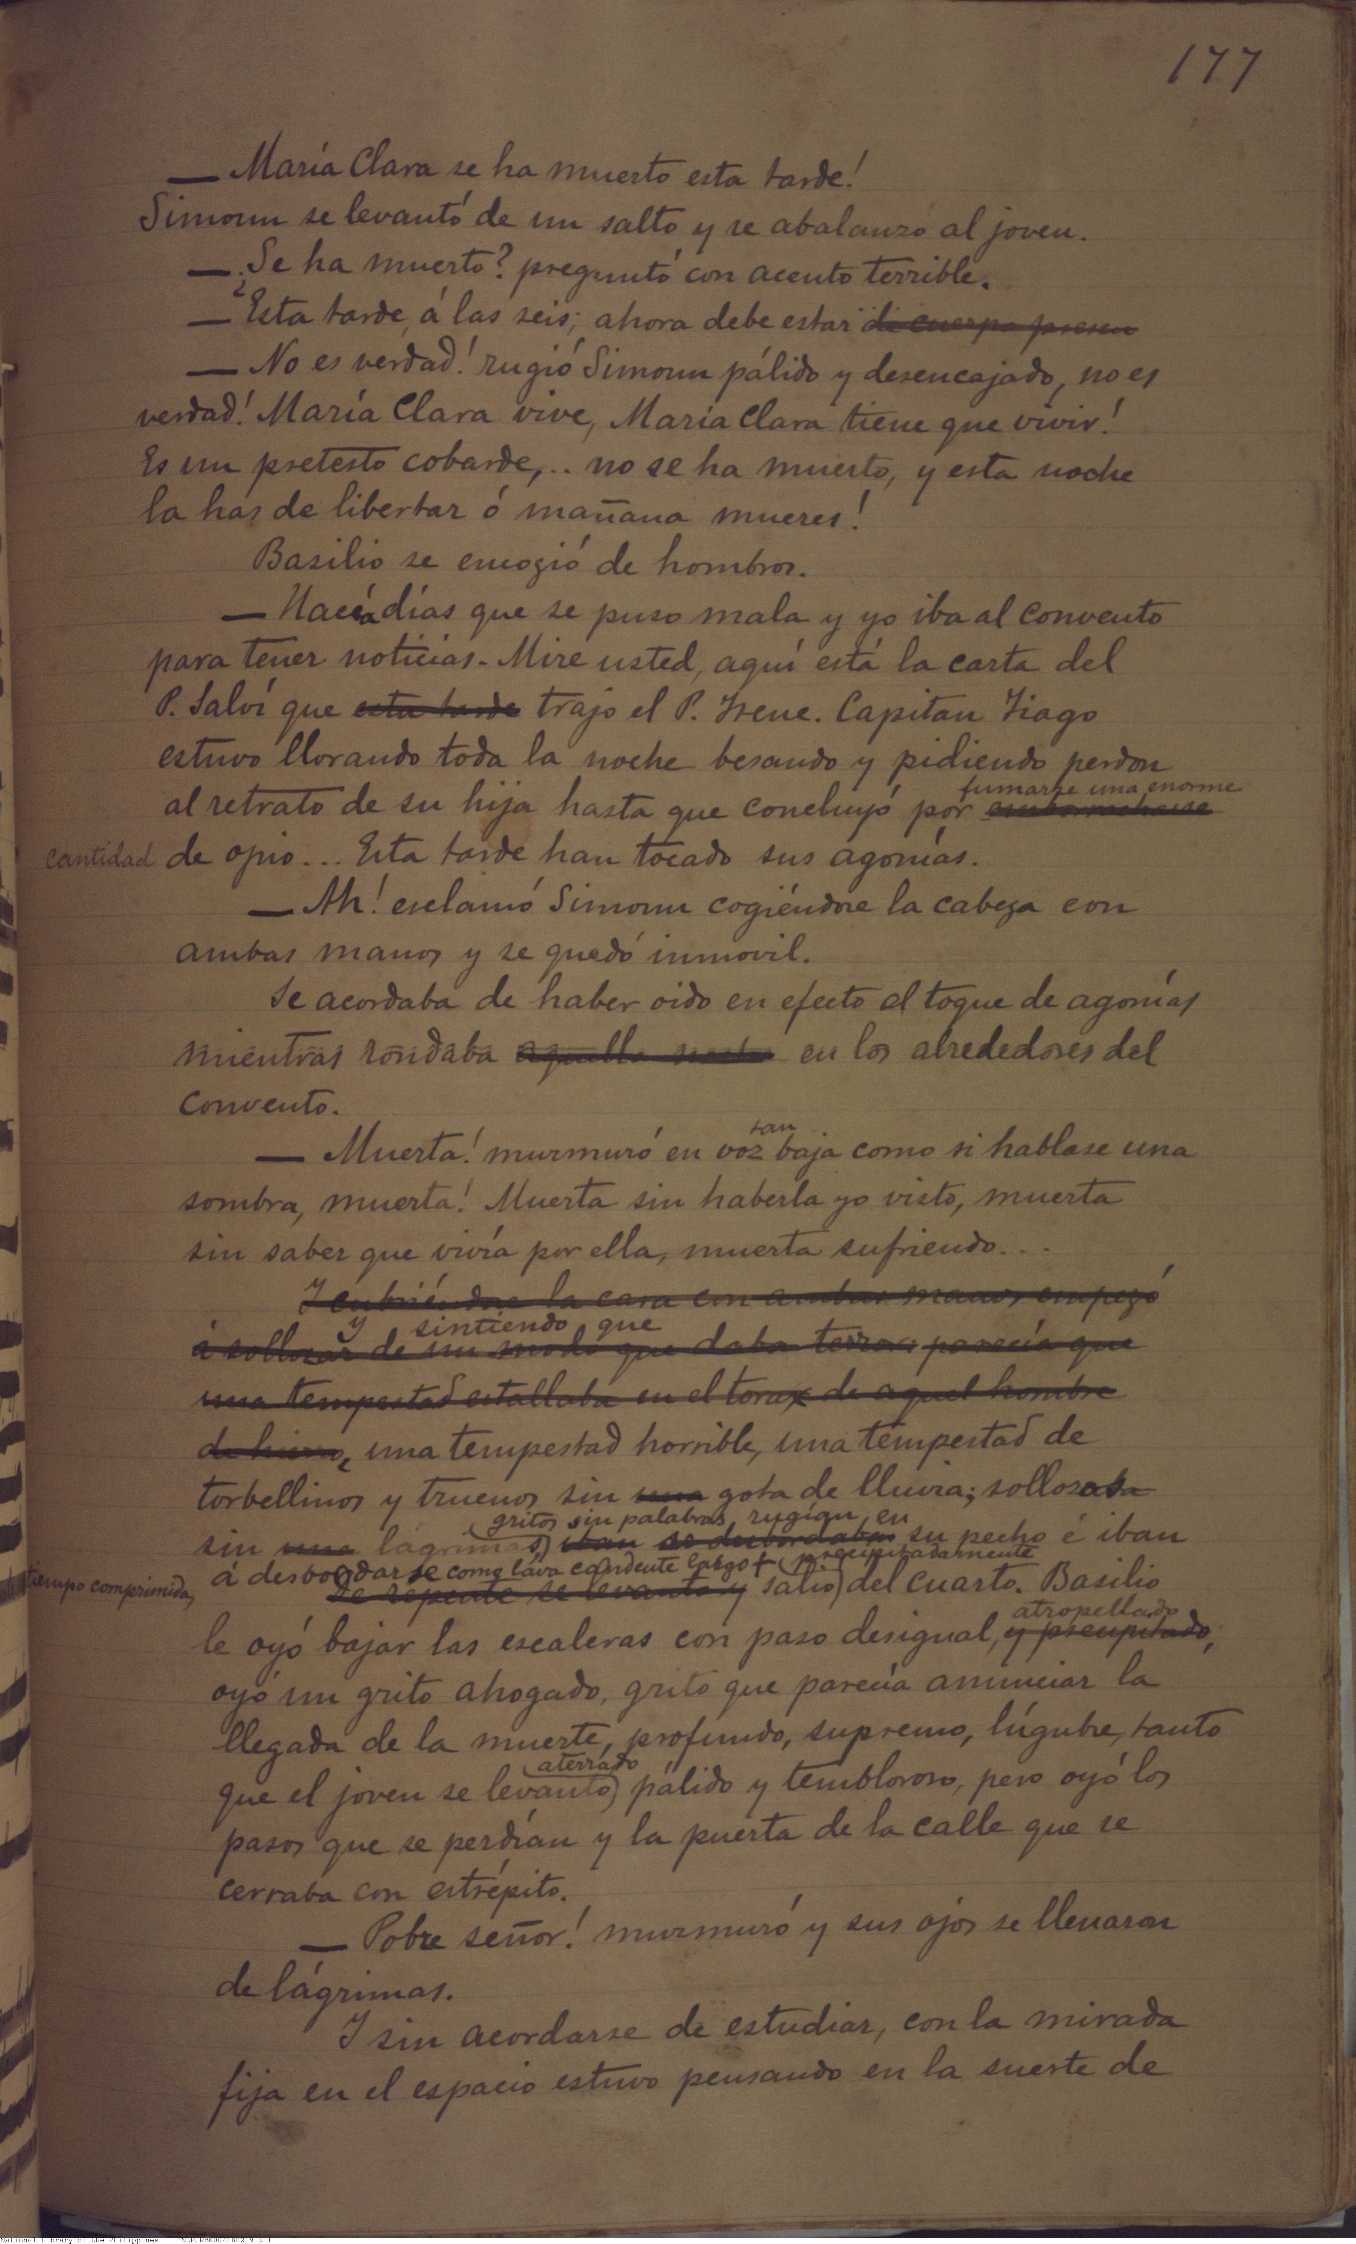 177
— María Clara se ha muerto esta tarde!
Simoun se levantó de un salto y se abalanzó al joven.
— ¿Se ha muerto? preguntó con acento terrible.
— Esta tarde, á las seis; ahora debe estar de cuerpo presen
— No es verdad! rugió Simoun pálido y desencajado, no es
verdad! María Clara vive, María Clara tiene que vivir!
Es un pretesto cobarde,.. no se ha muerto, y esta noche
la has de libertar ó mañana mueres!
Basilio se encogió de hombros.
— Hacía días que se puso mala y yo iba al convento
para tener noticias. Mire usted, aquí está la carta del
P. Salví que esta tarde trajo el P. Irene. Capitan Tiago
estuvo llorando toda la noche besando y pidiendo perdon
fumarse una enorme
al retrato de su hija hasta que concluyó por emborracharse
cantidad de opio... Esta tarde han tocado sus agonías.
— Ah! esclamó Simoun cogiéndose la cabeza con
ambas manos y se quedó inmovil.
Se acordaba de haber oido en efecto el toque de agonías
mientras rondaba aquella noche en los alrededores del
convento.
tan
— Muerta! murmuró en voz baja como si hablase una
sombra, muerta! Muerta sin haberla yo visto, muerta
sin saber que vivía por ella, muerta sufriendo...
Y cubriéndose la cara con ambas manos empezó
y sintiendo que
á sollozar de un modo que daba terror: parecía que
una tempestad estallaba en el torax de aquel hombre
de hierro, una tempestad horrible, una tempestad de
torbellinos y truenos sin una gota de lluvia; sollozaba
gritos sin palabras, rugían en
sin una lágrimas, iban se desbordaban su pecho é iban
á desbordarse como lava candente largo + precipitadamente
tiempo comprimida, de repente se levantó y salió del cuarto. Basilio
atropellado
le oyó bajar las escaleras con paso desigual, y precipitado,
oyó un grito ahogado, grito que parecía anunciar la
llegada de la muerte, profundo, supremo, lúgubre, tanto
aterrado
que el joven se levantó pálido y tembloroso, pero oyó los
pasos que se perdían y la puerta de la calle que se
cerraba con estrépito.
— Pobre señor! murmuró y sus ojos se llenaron
de lágrimas.
Y sin acordarse de estudiar, con la mirada
fija en el espacio estuvo pensando en la suerte de
National Library of the Philippines